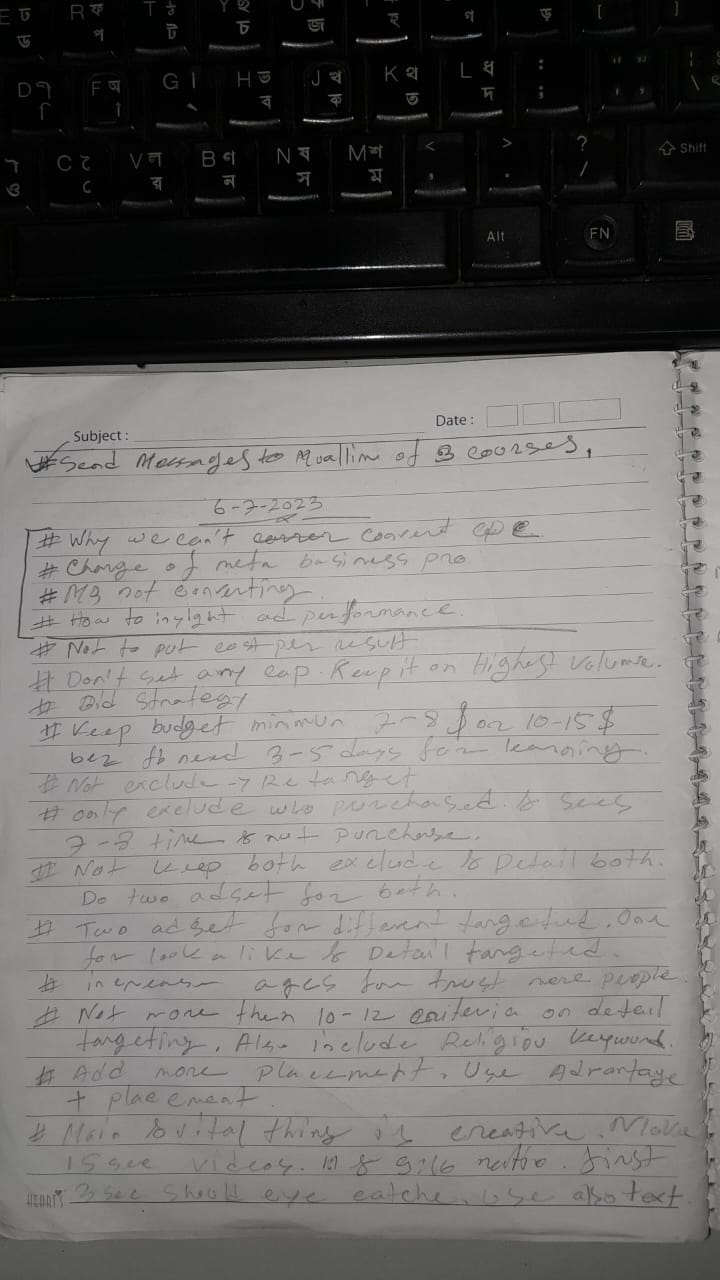 E ড ড
R ক প
T ঠ ট
Y চ
U জ
হ
প
ড়
[
]
D
F অ া
G । ্
H ভ ব
J খ ক
K থ ত
L ধ দ
: ;
" '
C
V ল র
B ণ ন
N ষ স
M শ ম
< ,
> .
? /
Shift
Alt
FN
Subject :
Date :
# Send Messages to Muallim of 3 courses,
6-7-2023
# Why we can't convert
# Change of meta business pro
# not converting
# How to insight ad performance.
# Not to put cost per result
# Don't set any cap. Keep it on Highest Volume.
# Bid Strategy
# Keep budget minimun 7-8 $ or 10-15 $
bez fb need 3-5 days for learning.
# Not exclude → Re target
# only exclude who purchased & sees
7-8 time & not purchase.
# Not keep both exclude & Detail both.
Do two adset for both.
# Two adset for different targeted. One
for look a like & Detail targeted.
# increase ages for trust more people.
# Not more then 10-12 criteria on detail
targeting. Also include Religiou keyword.
# Add more placement. Use Advantage
+ placement.
# Main & vital thing is creative. Make
15 sec videos. 1:1 & 9:16 ratio. first
HEARTS
3 sec should eye catche. Use also text.